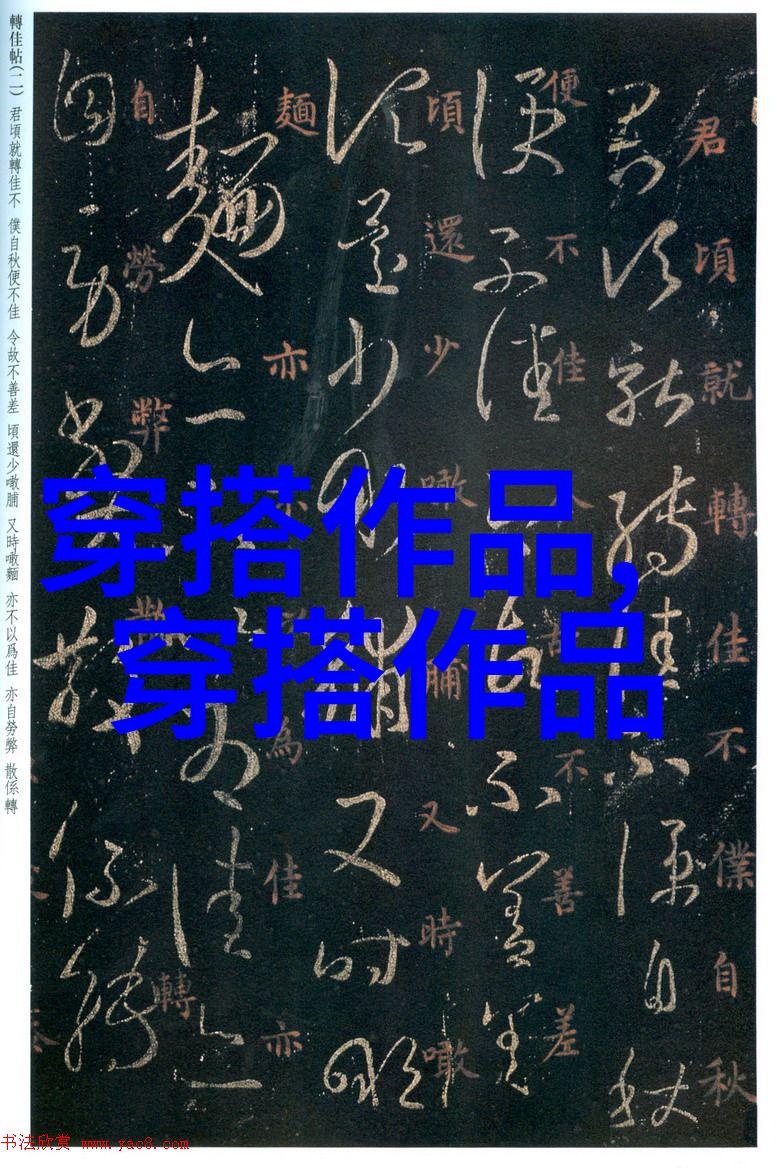 轉佳帖(二) 君頃就轉佳不 僕自秋便不佳 今故不善差 頃還少噉脯 又時噉麵 亦不以爲佳 亦自勞弊 散係轉
君頃就轉佳不僕自秋
便不佳今故不善差
頃還少噉脯又時噉
麵亦不以為佳亦
自勞弊散係轉
穿搭作品,
穿搭作品
书法欣赏 www.yac8.com